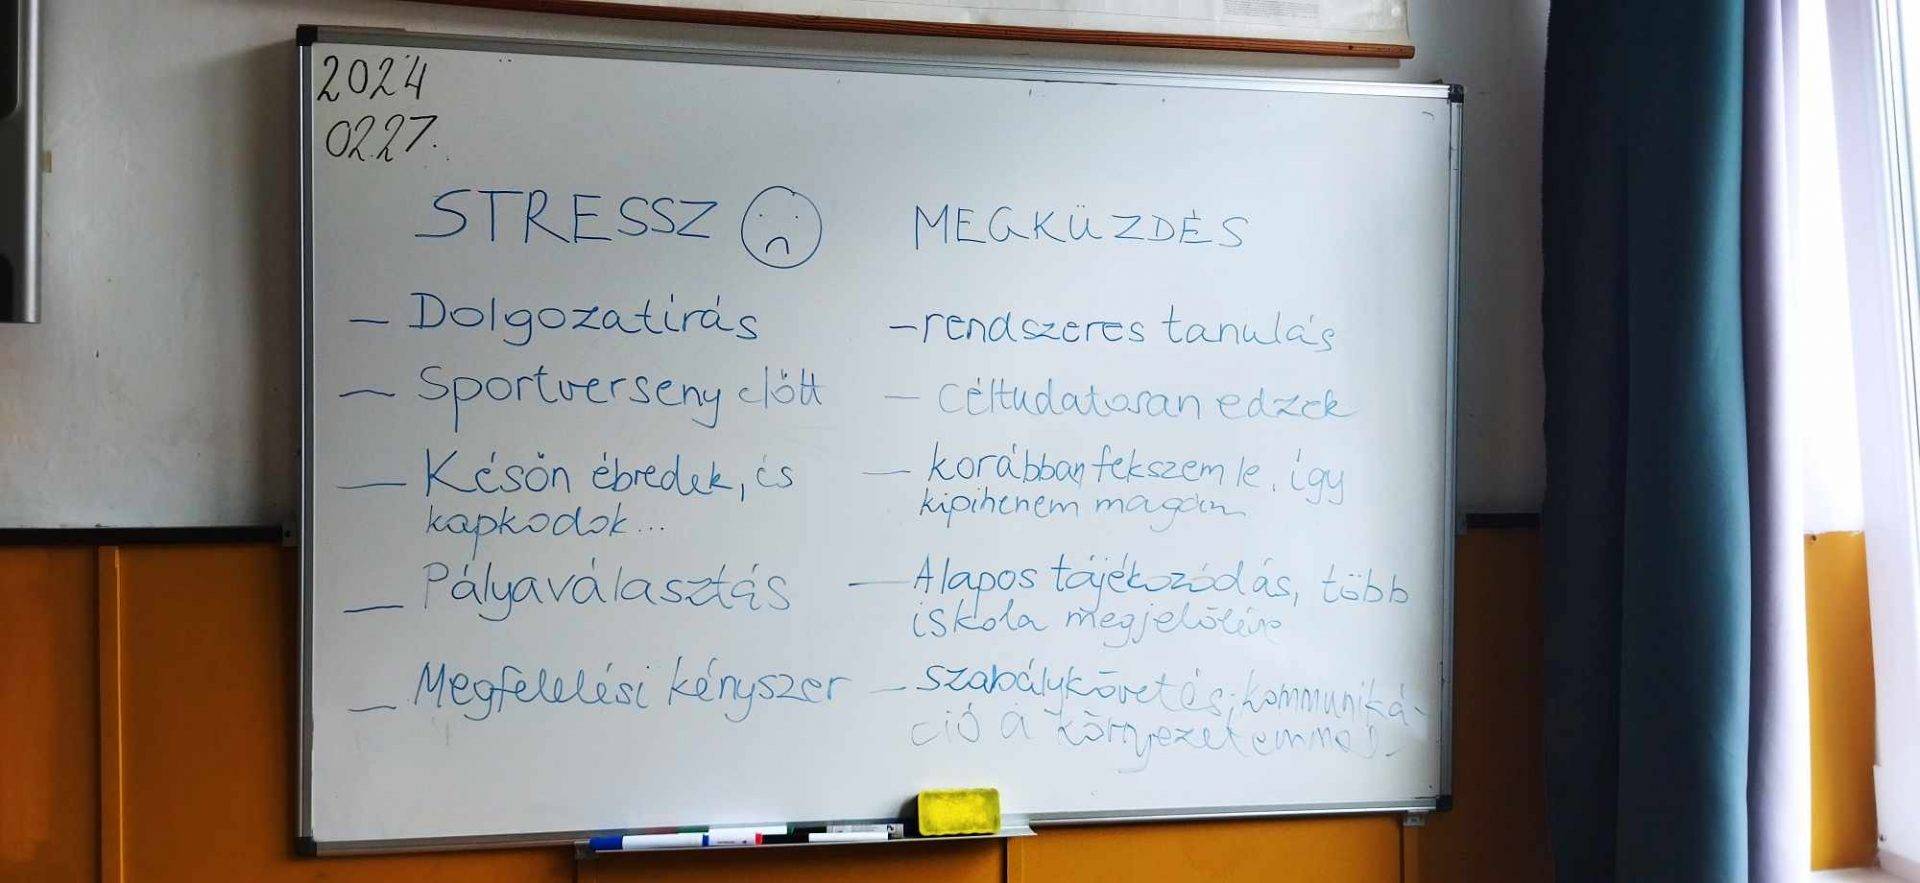 2024
02.27.
STRESSZ
— Dolgozatírás
— Sportverseny előtt
— Későn ébredek, és
kapkodok...
— Pályaválasztás
— Megfelelési kényszer
MEGKÜZDÉS
— rendszeres tanulás
— Céltudatosan edzek
— korábban fekszem le, így
kipihenem magam
— Alapos tájékozódás, több
iskola megjelölése
— szabálykövetés, kommuniká-
ció a környezetemmel